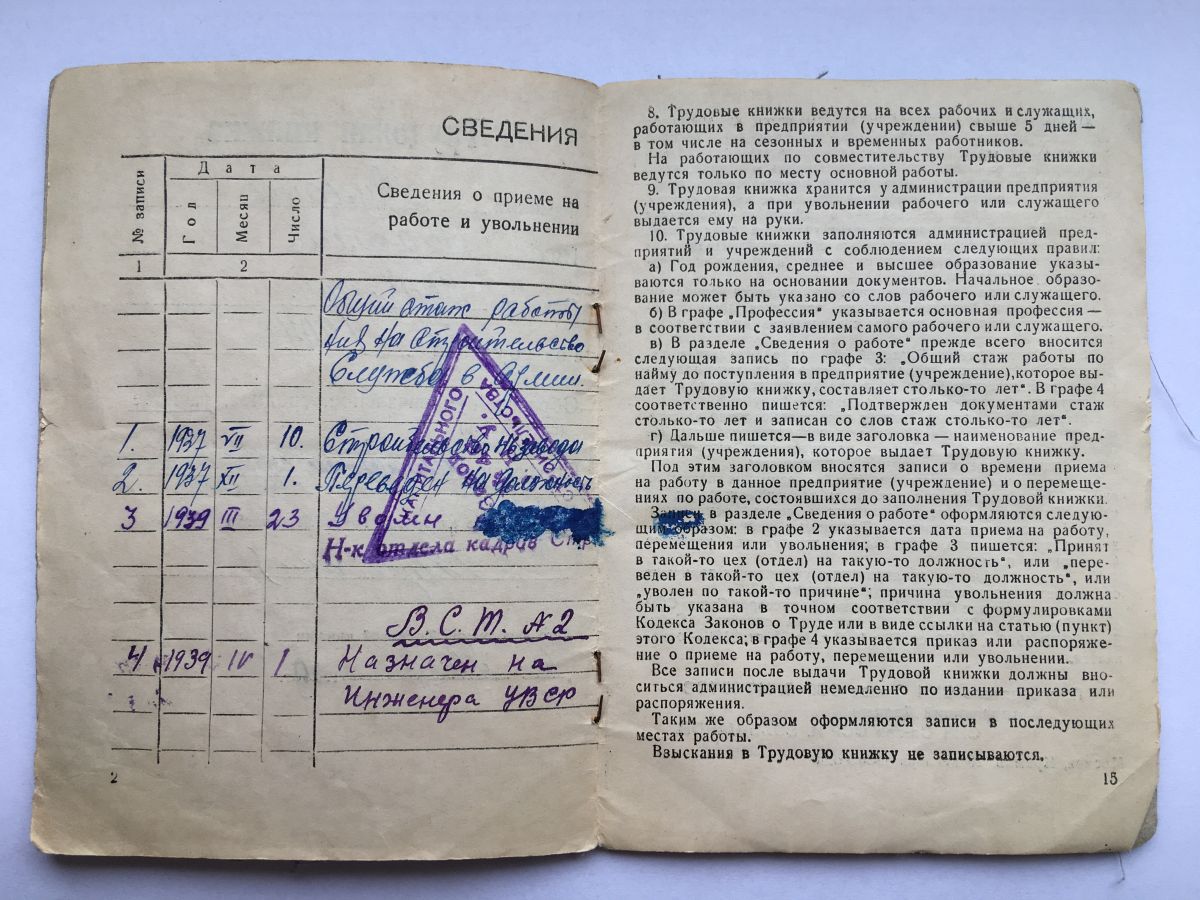 СВЕДЕНИЯ
№ записи
Дата
Год
Месяц
Число
Сведения о приеме на
работе и увольнении
1
2
Общий стаж работы
на строительство
Служба в армии.
1. 1937 VII 10. Строительство
2. 1937 XII 1. Переведен на должность
3 1939 III 23 Уволен
Н-к отдела кадров Стр
В.С.Т. №2
4 1939 IV 1 Назначен на
Инженера УВСР
2
8. Трудовые книжки ведутся на всех рабочих и служащих,
работающих в предприятии (учреждении) свыше 5 дней —
в том числе на сезонных и временных работников.
На работающих по совместительству Трудовые книжки
ведутся только по месту основной работы.
9. Трудовая книжка хранится у администрации предприятия
(учреждения), а при увольнении рабочего или служащего
выдается ему на руки.
10. Трудовые книжки заполняются администрацией пред-
приятий и учреждений с соблюдением следующих правил:
а) Год рождения, среднее и высшее образование указы-
ваются только на основании документов. Начальное образо-
вание может быть указано со слов рабочего или служащего.
б) В графе „Профессия“ указывается основная профессия —
в соответствии с заявлением самого рабочего или служащего.
в) В разделе „Сведения о работе“ прежде всего вносится
следующая запись по графе 3: „Общий стаж работы по
найму до поступления в предприятие (учреждение),которое вы-
дает Трудовую книжку, составляет столько-то лет“. В графе 4
соответственно пишется: „Подтвержден документами стаж
столько-то лет и записан со слов стаж столько-то лет“.
г) Дальше пишется—в виде заголовка — наименование пред-
приятия (учреждения), которое выдает Трудовую книжку.
Под этим заголовком вносятся записи о времени приема
на работу в данное предприятие (учреждение) и о перемеще-
ниях по работе, состоявшихся до заполнения Трудовой книжки.
Записи в разделе „Сведения о работе“ оформляются следую-
щим образом: в графе 2 указывается дата приема на работу,
перемещения или увольнения; в графе 3 пишется: „Принят
в такой-то цех (отдел) на такую-то должность“, или „пере-
веден в такой-то цех (отдел) на такую-то должность“, или
„уволен по такой-то причине“; причина увольнения должна
быть указана в точном соответствии с формулировками
Кодекса Законов о Труде или в виде ссылки на статью (пункт)
этого Кодекса; в графе 4 указывается приказ или распоряже-
ние о приеме на работу, перемещении или увольнении.
Все записи после выдачи Трудовой книжки должны вно-
ситься администрацией немедленно по издании приказа или
распоряжения.
Таким же образом оформляются записи в последующих
местах работы.
Взыскания в Трудовую книжку не записываются.
15